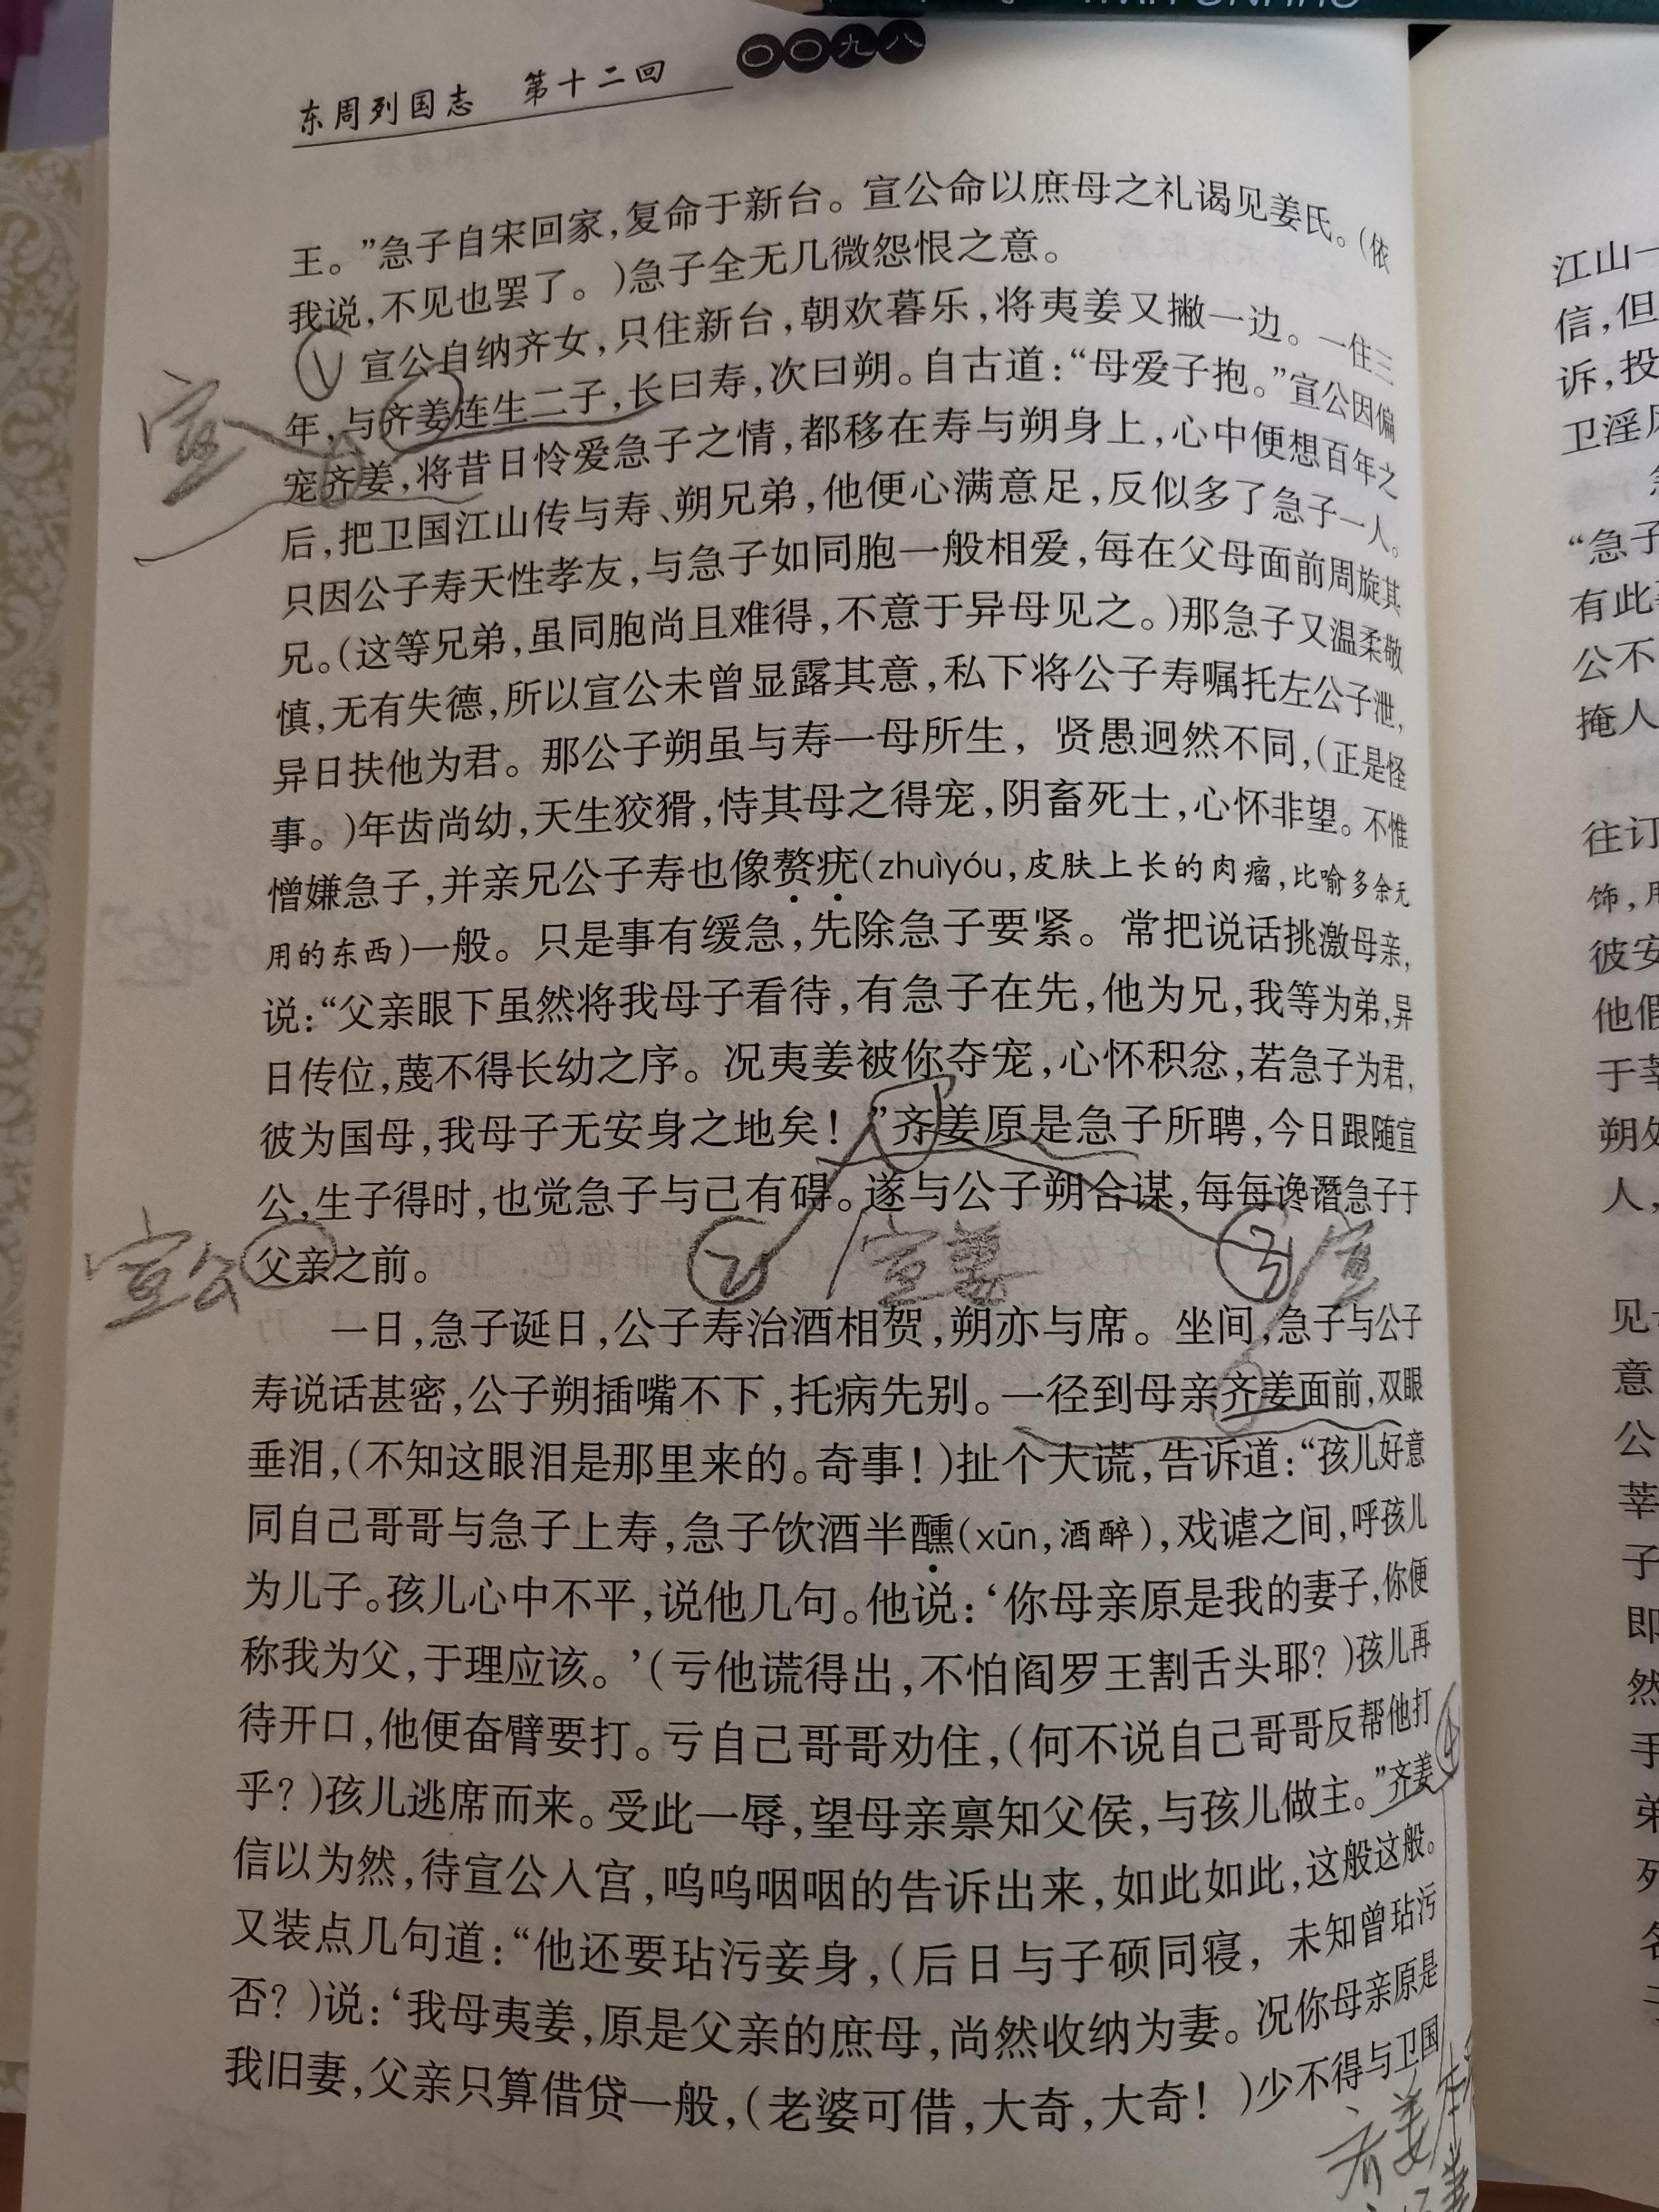 东周列国志 第十二回 〇〇九八
王。”急子自宋回家,复命于新台。宣公命以庶母之礼谒见姜氏。(依
我说,不见也罢了。)急子全无几微怨恨之意。
① 宣公自纳齐女,只住新台,朝欢暮乐,将夷姜又撇一边。一住三
年,与齐姜连生二子,长曰寿,次曰朔。自古道:“母爱子抱。”宣公因偏
宣
宠齐姜,将昔日怜爱急子之情,都移在寿与朔身上,心中便想百年之
后,把卫国江山传与寿、朔兄弟,他便心满意足,反似多了急子一人。
只因公子寿天性孝友,与急子如同胞一般相爱,每在父母面前周旋其
兄。(这等兄弟,虽同胞尚且难得,不意于异母见之。)那急子又温柔敬
慎,无有失德,所以宣公未曾显露其意,私下将公子寿嘱托左公子泄,
异日扶他为君。那公子朔虽与寿一母所生，贤愚迥然不同,(正是怪
事。)年齿尚幼,天生狡猾,恃其母之得宠,阴畜死士,心怀非望。不惟
憎嫌急子,并亲兄公子寿也像赘疣(zhuìyóu,皮肤上长的肉瘤,比喻多余无
用的东西)一般。只是事有缓急,先除急子要紧。常把说话挑激母亲,
说:“父亲眼下虽然将我母子看待,有急子在先,他为兄,我等为弟,异
日传位,蔑不得长幼之序。况夷姜被你夺宠,心怀积忿,若急子为君,
彼为国母,我母子无安身之地矣！”齐姜原是急子所聘,今日跟随宣
公,生子得时,也觉急子与己有碍。遂与公子朔合谋,每每谗谮急子于
宣公 父亲之前。 ② 宣姜 ③ 宣
一日,急子诞日,公子寿治酒相贺,朔亦与席。坐间,急子与公子
寿说话甚密,公子朔插嘴不下,托病先别。一径到母亲齐姜面前,双眼
垂泪,(不知这眼泪是那里来的。奇事！)扯个大谎,告诉道:“孩儿好意
同自己哥哥与急子上寿,急子饮酒半醺(xūn,酒醉),戏谑之间,呼孩儿
为儿子。孩儿心中不平,说他几句。他说:‘你母亲原是我的妻子,你便
称我为父,于理应该。’(亏他谎得出,不怕阎罗王割舌头耶？)孩儿再
待开口,他便奋臂要打。亏自己哥哥劝住,(何不说自己哥哥反帮他打
④
乎？)孩儿逃席而来。受此一辱,望母亲禀知父侯,与孩儿做主。”齐姜
信以为然,待宣公入宫,呜呜咽咽的告诉出来,如此如此,这般这般。
又装点几句道:“他还要玷污妾身,(后日与子硕同寝，未知曾玷污
否？)说:‘我母夷姜,原是父亲的庶母,尚然收纳为妻。况你母亲原是
我旧妻,父亲只算借贷一般,(老婆可借,大奇,大奇！)少不得与卫国
齐姜
江山一
信,但
诉,投
卫淫
“急子
有此
公不
掩人
往订
饰,用
彼安
他假
于莘
朔处
人,
见
意
公
莘
子
即
然
手
弟
死
名